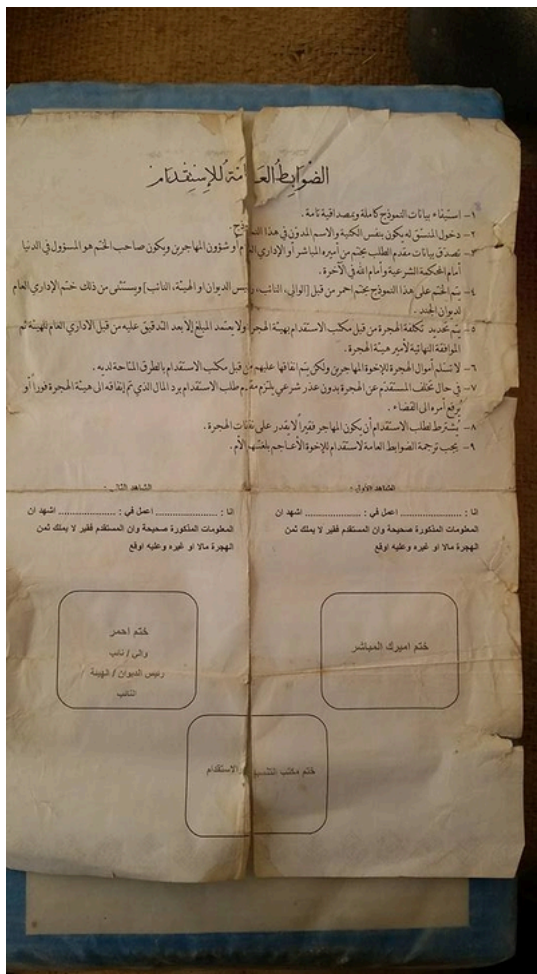 الضوابط العامة للإستقدام
١- استيفاء بيانات النموذج كاملة وبمصداقية تامة .
٢- دخول المنسق له يكون بنفس الكنية والاسم المدون في هذا
٣- تصدق بيانات مقدم الطلب بختم من أميره المباشر أو الإداري العام أو شؤون المهاجرين ويكون صاحب الختم هو المسؤول في الدنيا
أمام المحكمة الشرعية وأمام الله في الآخرة .
٤- يتم الختم على هذا النموذج بختم احمر من قبل [الوالي، النائب، رئيس الديوان او الهيئة، النائب] ويستثنى من ذلك ختم الإداري العام
لديوان الجند .
٥- يتم تحديد تكلفة الهجرة من قبل مكتب الاستقدام بهيئة الهجرة ولا يعتمد المبلغ إلا بعد التدقيق عليه من قبل الاداري العام للهيئة ثم
الموافقة النهائية لأمير هيئة الهجرة .
٦- لا تسلم أموال الهجرة للإخوة المهاجرين ولكن يتم انفاقها عليهم من قبل مكتب الاستقدام بالطرق المتاحة لديه .
٧- في حال تخلف المستقدم عن الهجرة بدون عذر شرعي يلتزم مقدم طلب الاستقدام برد المال الذي تم إنفاقه الى هيئة الهجرة فوراً أو
يُرفع أمره الى القضاء .
٨- يُشترط لطلب الاستقدام أن يكون المهاجر فقيراً لا يقدر على نفقات الهجرة .
٩- يجب ترجمة الضوابط العامة لاستقدام للإخوة الأعاجم بلغتهم الأم .
الشاهد الأول :
الشاهد الثاني :
انا : .................... اعمل في : .................. اشهد ان
المعلومات المذكورة صحيحة وان المستقدم فقير لا يملك ثمن
الهجرة مالا او غيره وعليه اوقع
انا : .................... اعمل في : .................. اشهد ان
المعلومات المذكورة صحيحة وان المستقدم فقير لا يملك ثمن
الهجرة مالا او غيره وعليه اوقع
ختم اميرك المباشر
ختم احمر
والي / نائب
رئيس الديوان / الهيئة
النائب
ختم مكتب التنسيق والاستقدام